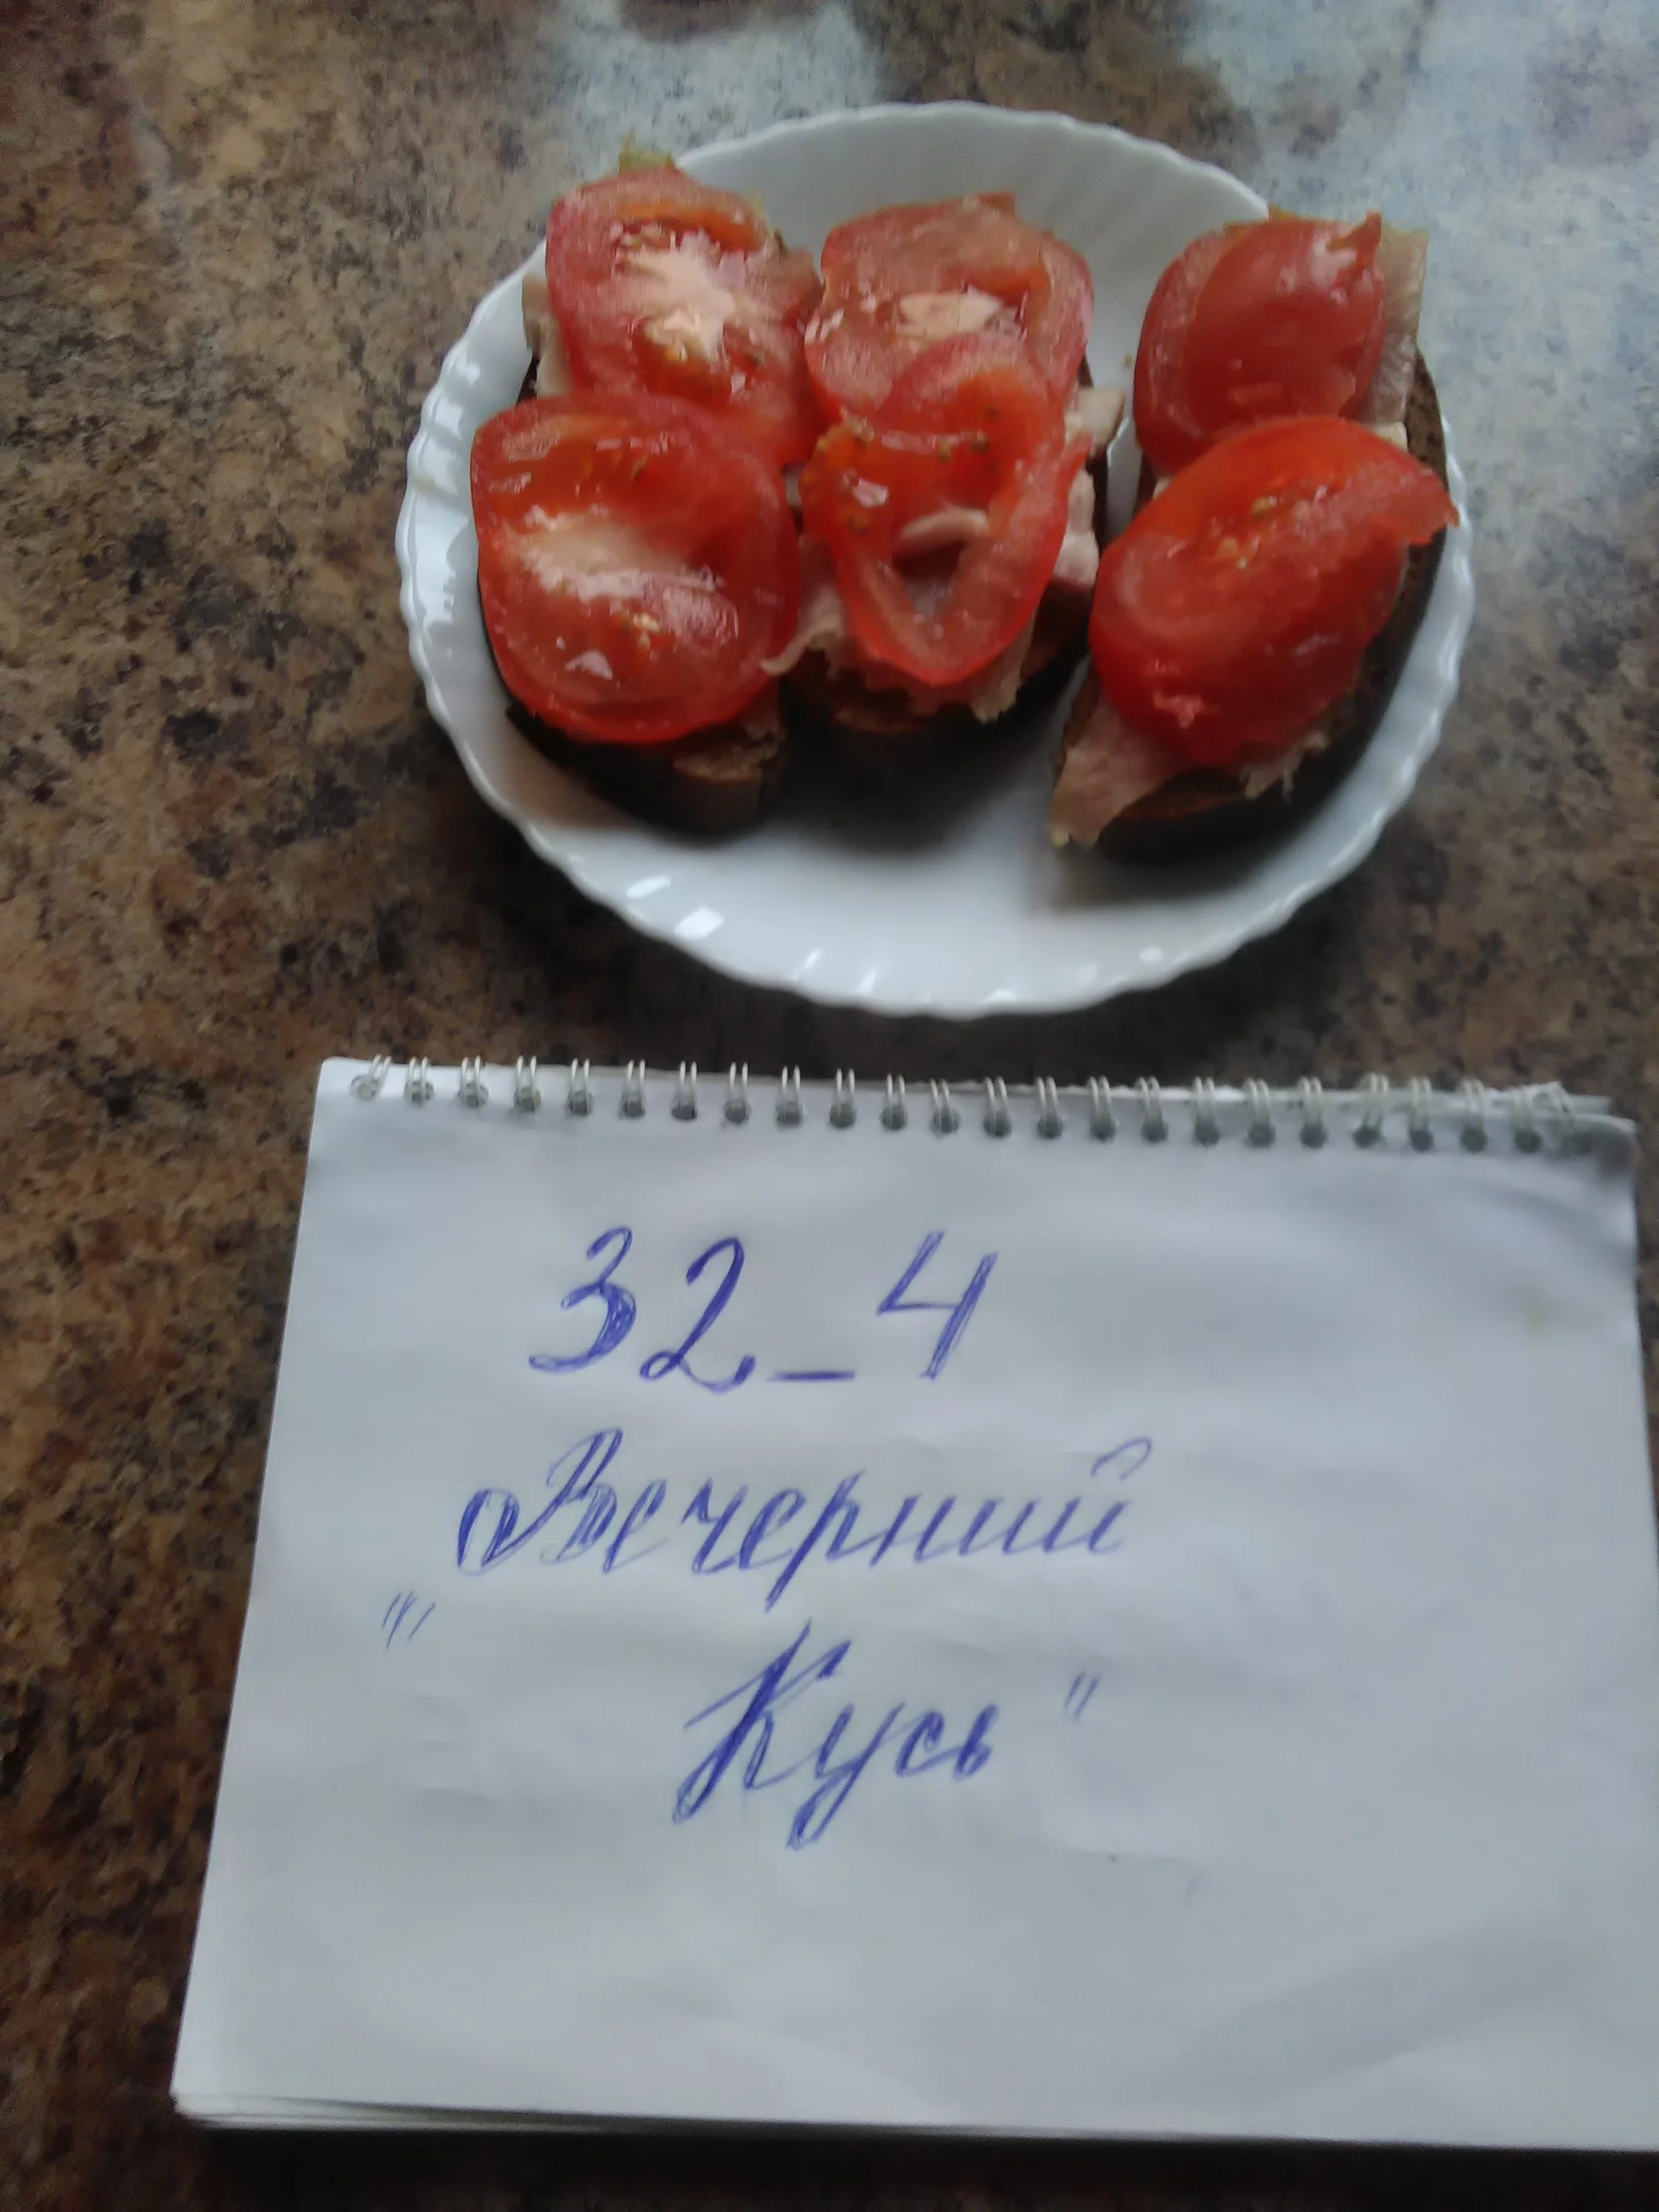 32_4
Вечерний
" Кусь"